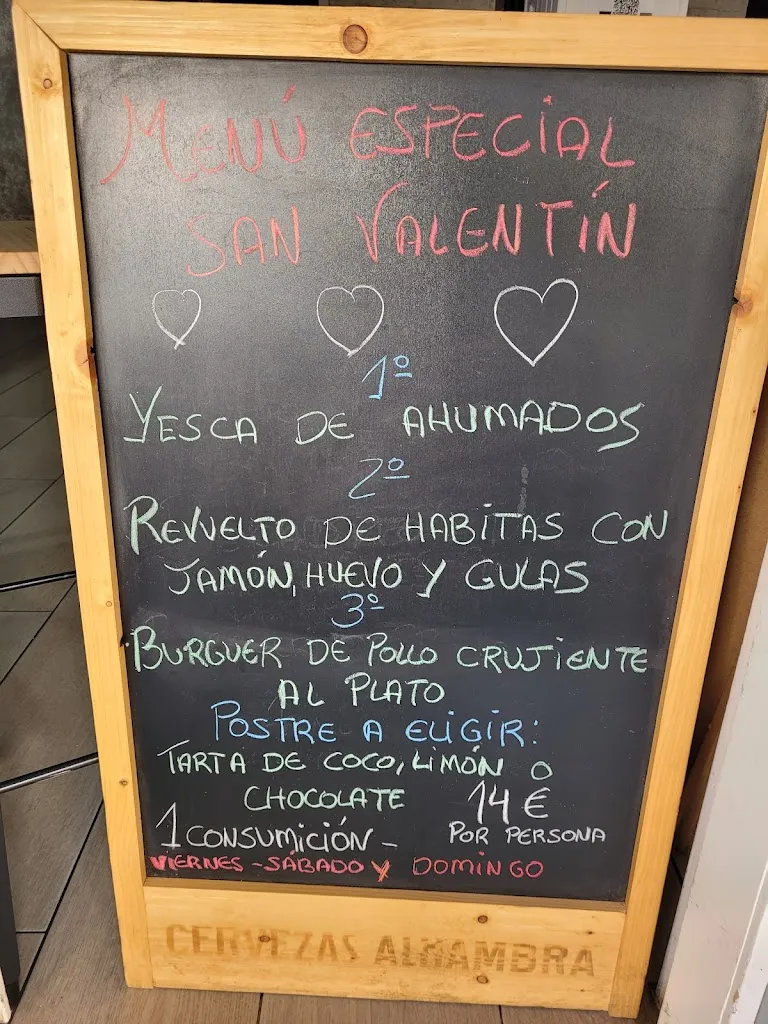 MENÚ ESPECIAL
SAN VALENTÍN
1º
YESCA DE AHUMADOS
2º
REVUELTO DE HABITAS CON
JAMÓN, HUEVO Y GULAS
3º
BURGUER DE POLLO CRUJIENTE
AL PLATO
POSTRE A ELIGIR:
TARTA DE COCO, LIMÓN O
CHOCOLATE 14€
1 CONSUMICIÓN - POR PERSONA
VIERNES - SÁBADO Y DOMINGO
CERVEZAS ALHAMBRA